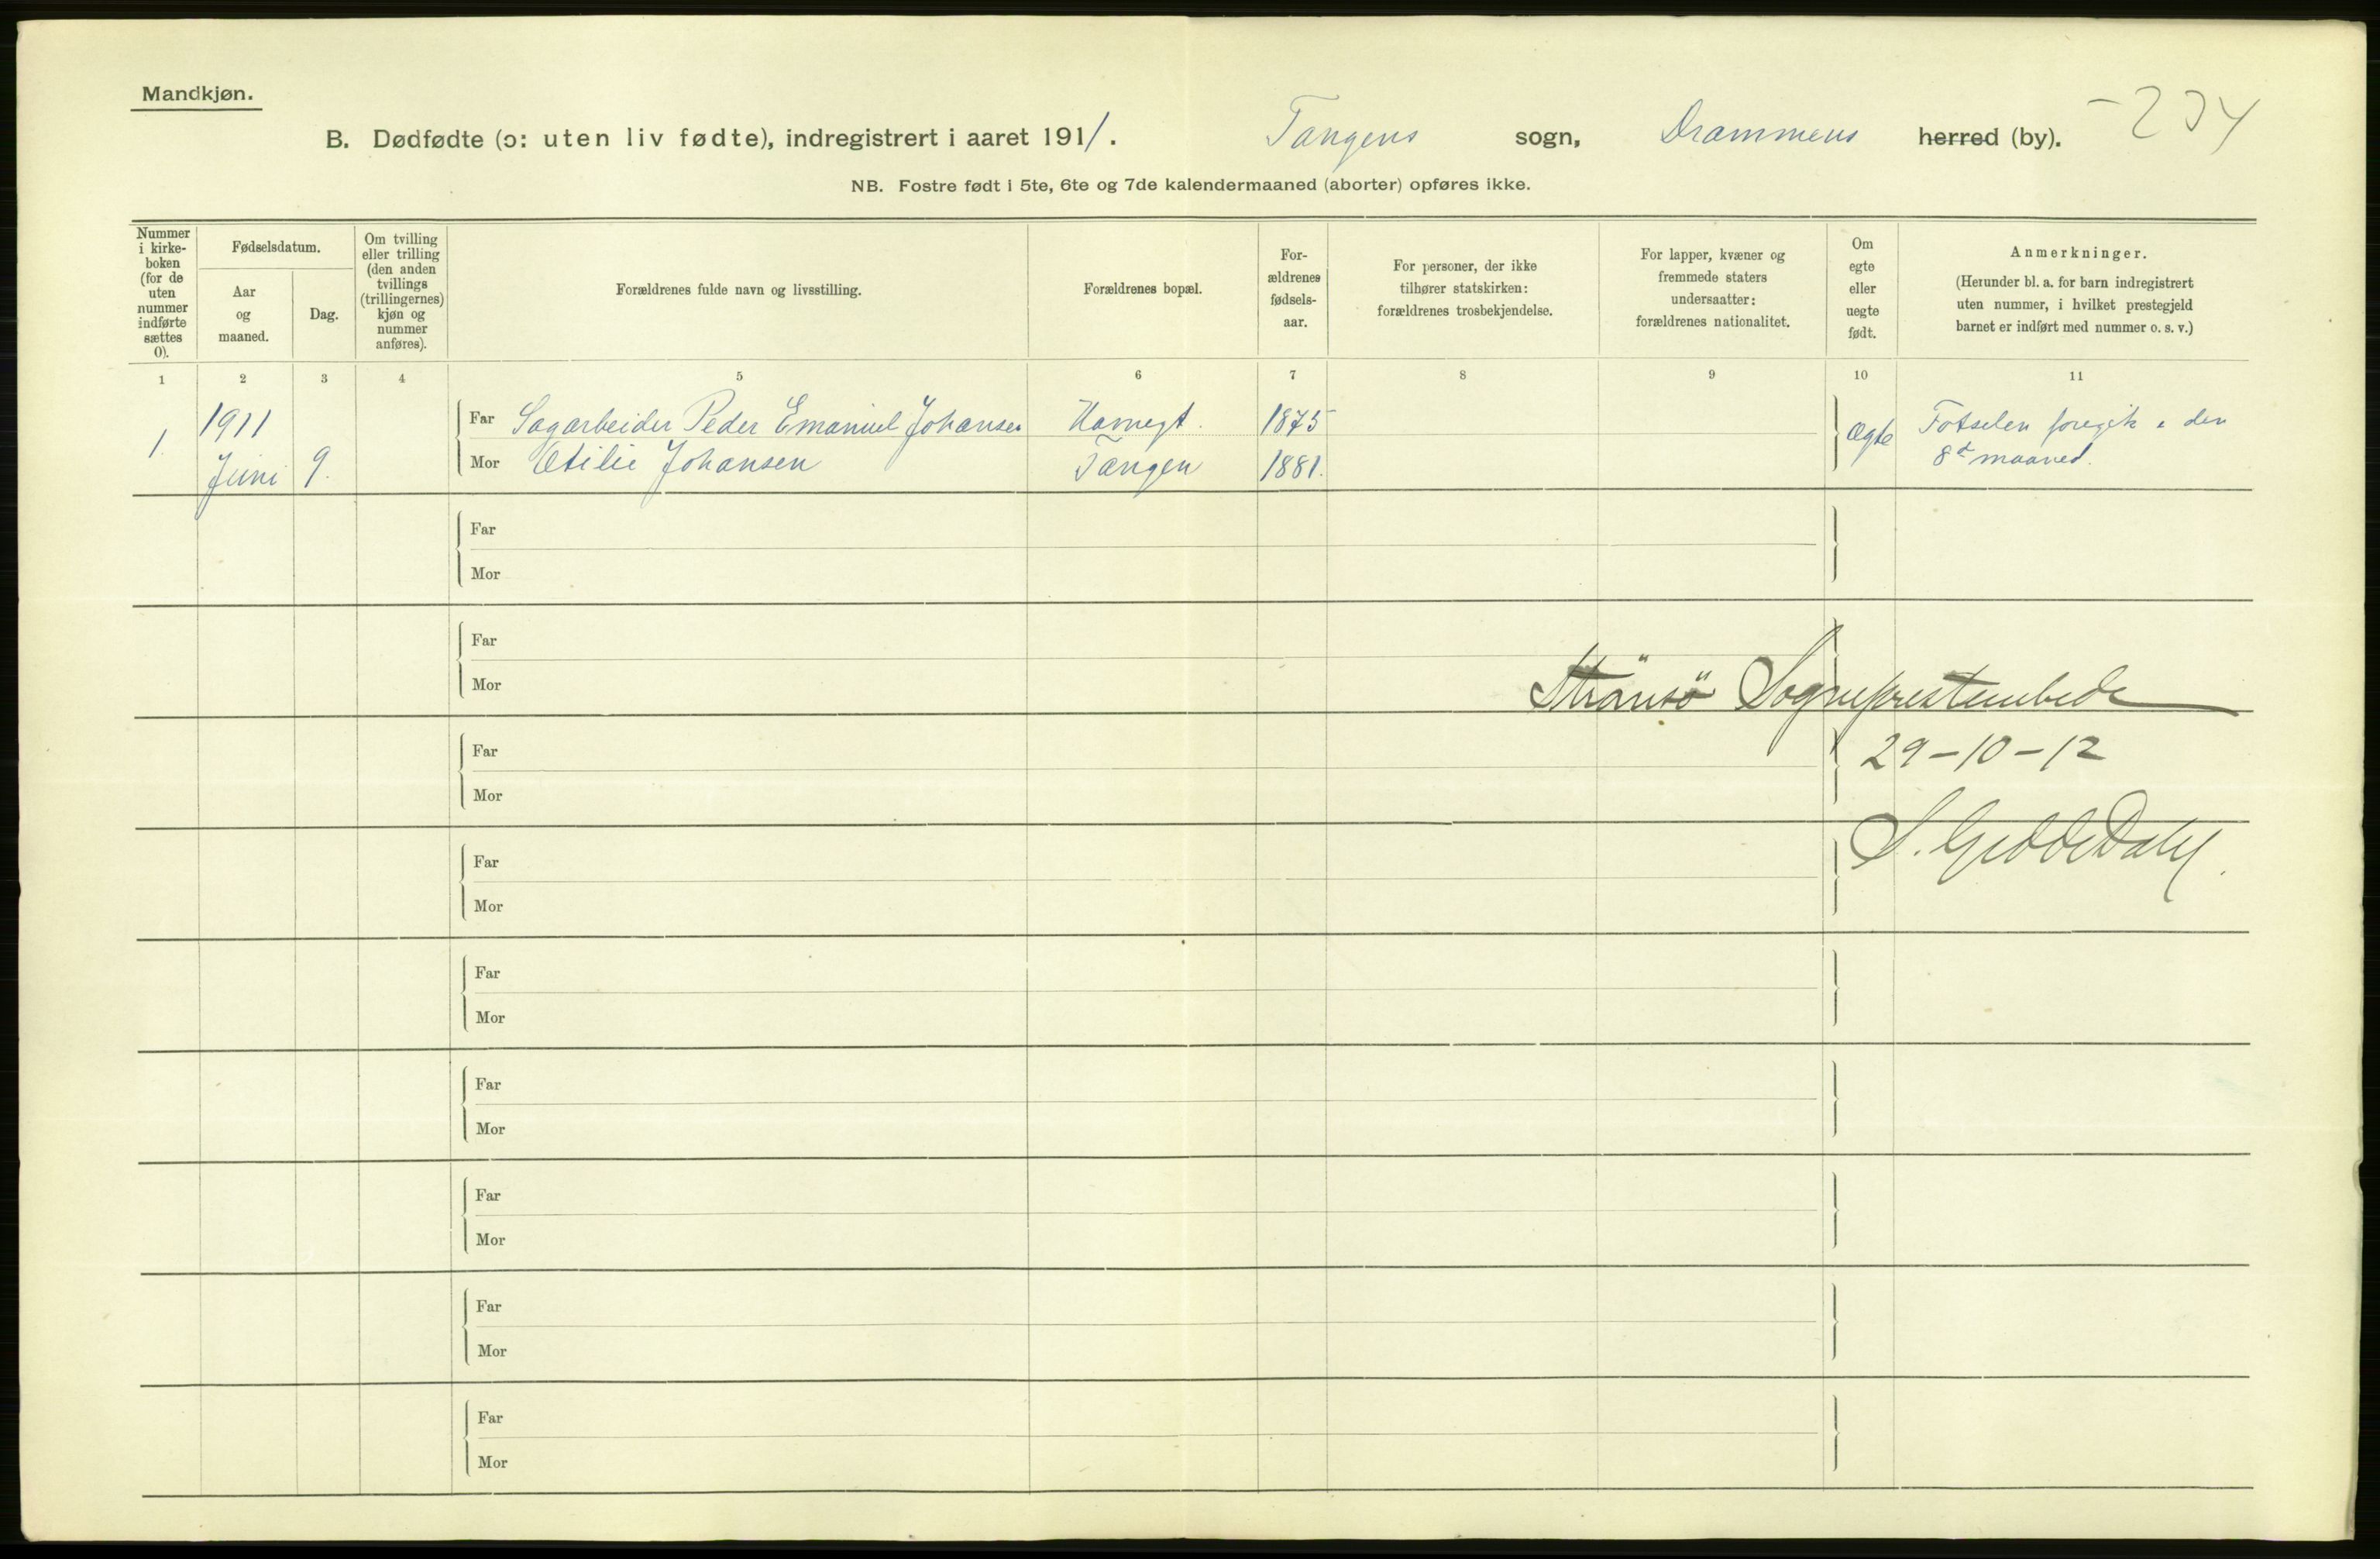 Mandkjøn.
B. Dødfødte (ɔ: uten liv fødte), indregistrert i aaret 1911. Tangens sogn, Drammens herred (by). -234
NB. Fostre født i 5te, 6te og 7de kalendermaaned (aborter) opføres ikke.
Nummer i kirke-boken (for de uten nummer indførte sættes 0).
Fødselsdatum.
Aar og maaned.
Dag.
Om tvilling eller trilling (den anden tvillings (trillingernes) kjøn og nummer anføres).
Forældrenes fulde navn og livsstilling.
Forældrenes bopæl.
For-ældrenes fødsels-aar.
For personer, der ikke tilhører statskirken: forældrenes trosbekjendelse.
For lapper, kvæner og fremmede staters undersaatter: forældrenes nationalitet.
Om egte eller uegte født.
Anmerkninger.
(Herunder bl. a. for barn indregistrert uten nummer, i hvilket prestegjeld barnet er indført med nummer o. s. v.)
1 2 3 4 5 6 7 8 9 10 11
1. 1911 Juni 9.
Far Sagarbeider Peder Emanuel Johansen Havnegt. 1875
Mor Otilie Johansen Tangen 1881.
Ægte
Fødselen foregik i den
8d maaned.
Far
Mor
Far
Mor
Strömsö Sogneprestembede
Far
29-10-12
Mor
Far
Mor
Far
Mor
Far
Mor
Far
Mor
Far
Mor
Far
Mor